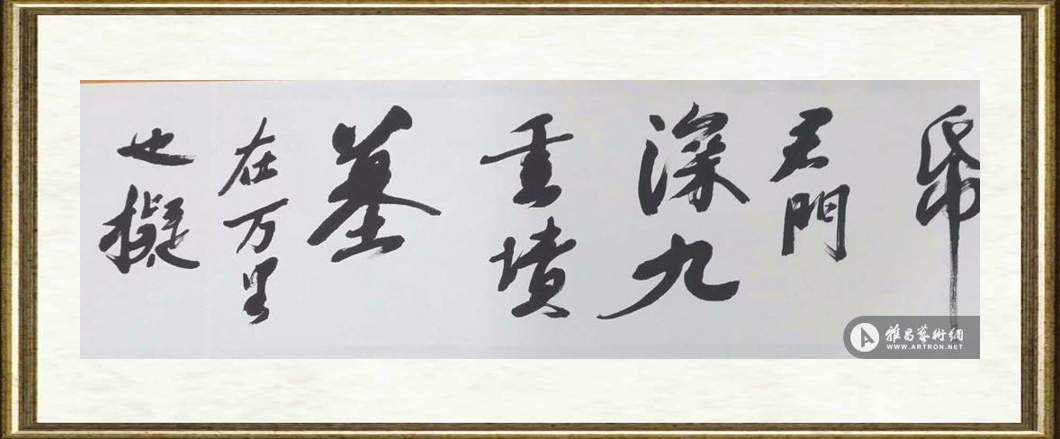 帋
君門
深九
重墳
墓
在万里
也擬
雅昌藝術網
WWW.ARTRON.NET